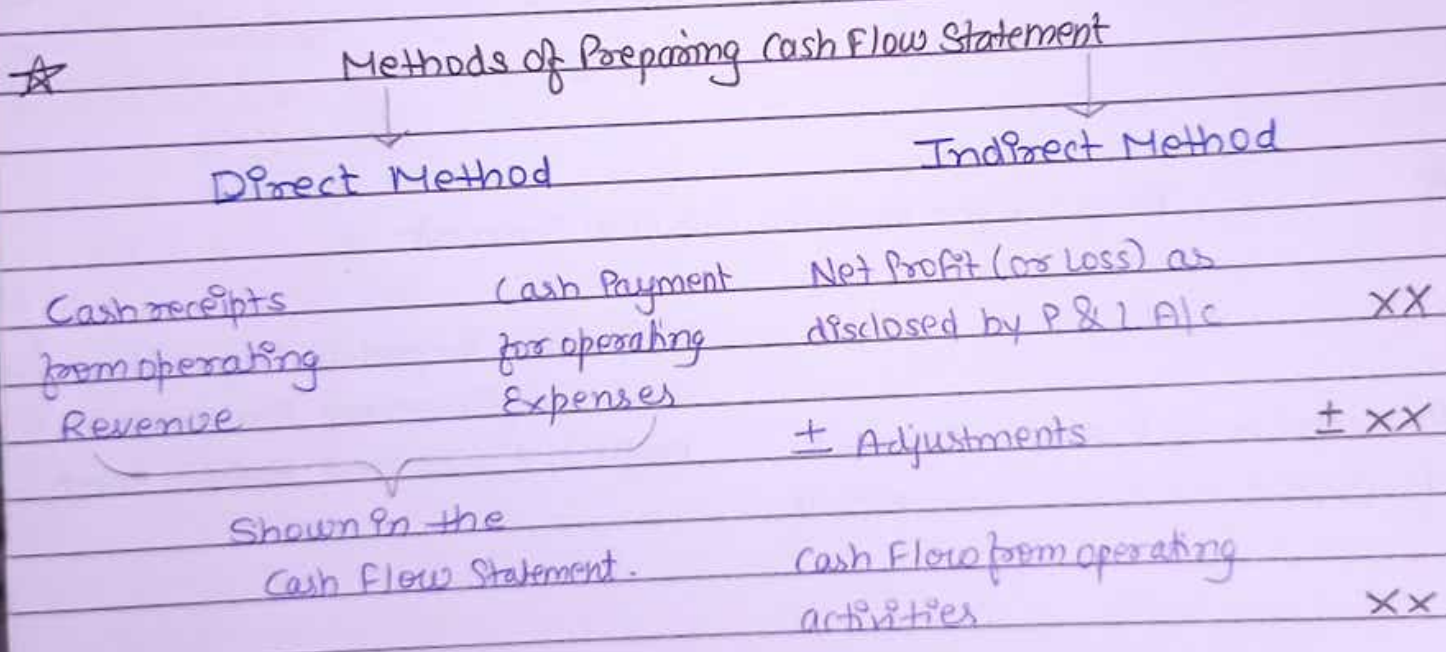 Methods of Preparing Cash Flow Statement
Direct Method
Indirect Method
Cash receipts
from operating
Revenue
Cash Payment
for operating
Expenses
Shown in the
Cash Flow Statement.
Net Profit (or Loss) as
disclosed by P & L A/c XX
± Adjustments ± XX
Cash Flow from operating
activities XX